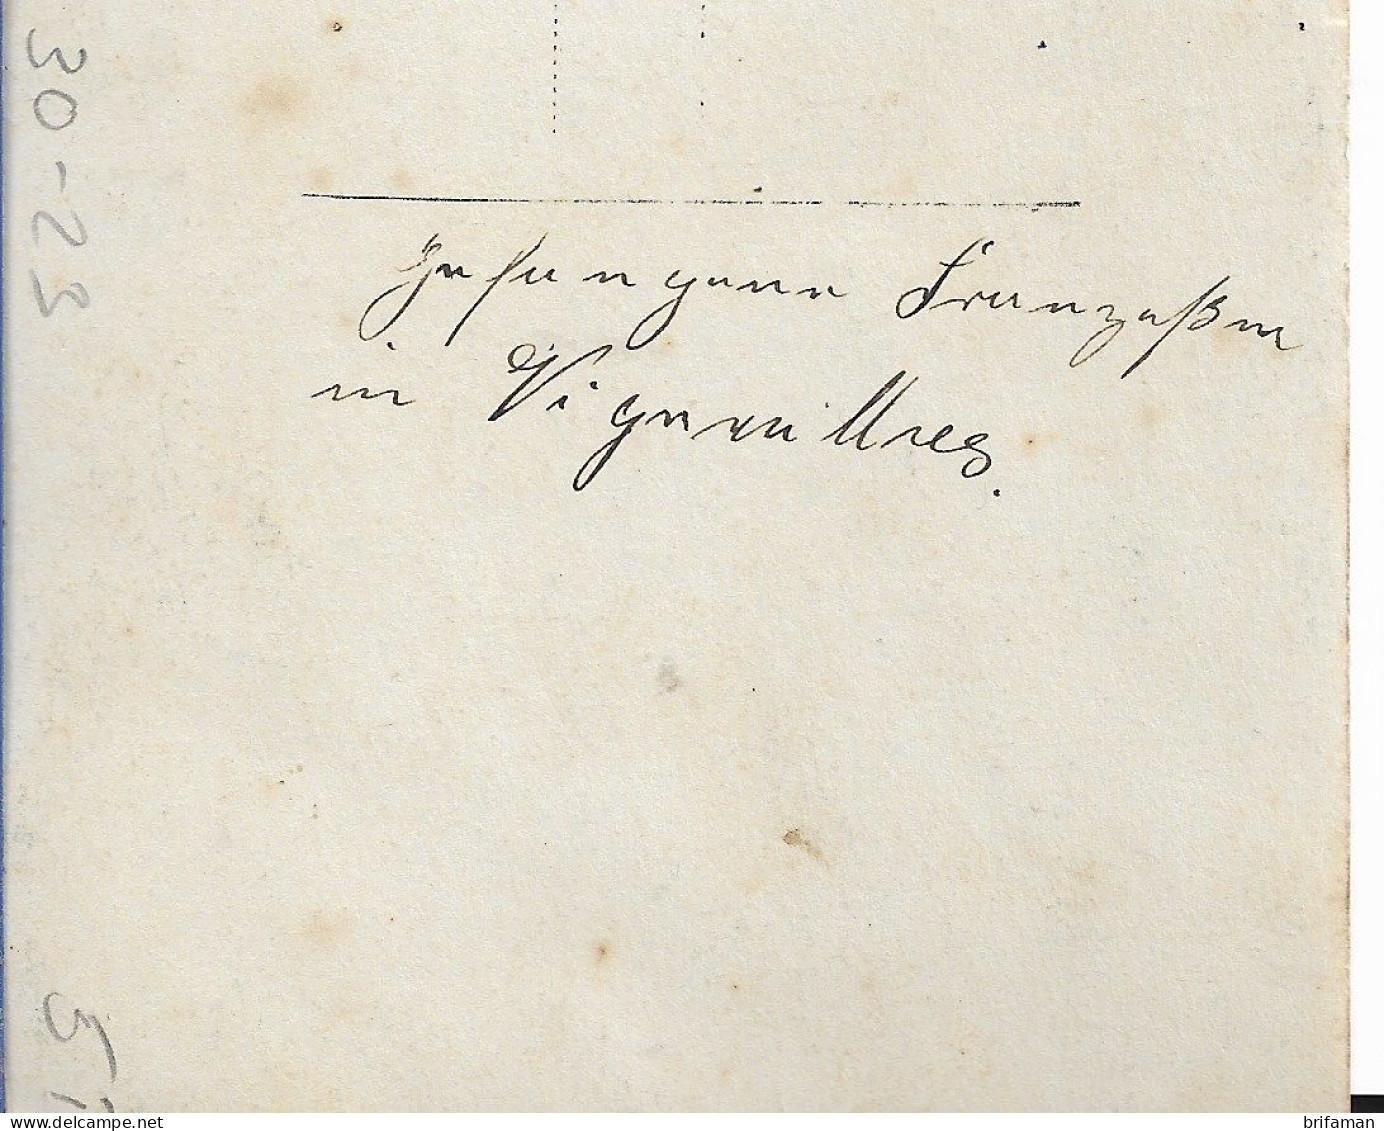 30-23
Gefangene Franzoßen
in Vigneulles.
brifaman